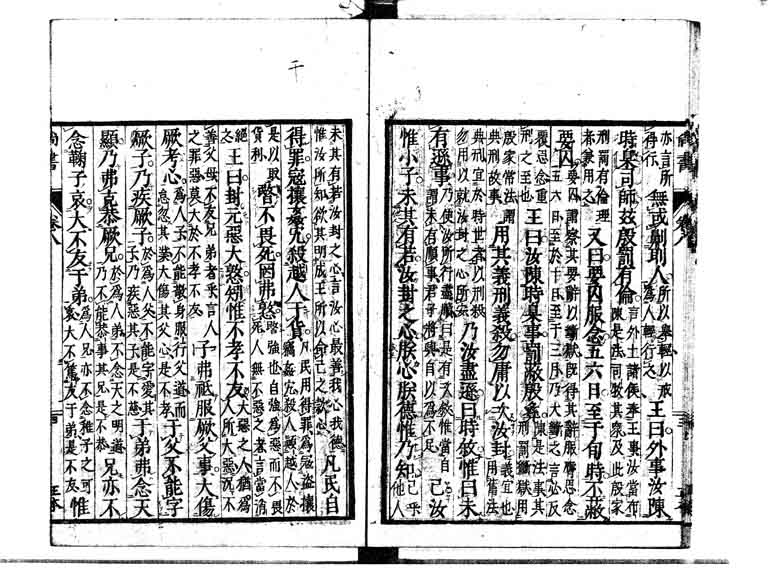 亦言所得行無或劓刵人所以舉輕以戒為人輕行之王曰外事汝陳
時臬司師茲殷罰有倫言外土諸侯奉王事汝當布陳是法司牧其衆及此殷家
刑罰有倫理者兼用之又曰要囚服念五六日至于旬時丕蔽
要囚要囚謂察其要辭以斷獄既得其辭服膺思念五六日至於十日至于三月乃大斷之言必反
覆思念重刑之至也王曰汝陳時臬事罰蔽殷彝陳是法事其刑罰斷獄用
殷家常法謂典刑故事用其義刑義殺勿庸以次汝封義宜也用舊法
典刑宜於時世者以刑殺勿用以就汝封之心所安乃汝盡遜曰時敘惟曰未
有遜事乃使汝所行盡順曰是有次敘惟當自謂未有順事君子將興自以為不足已汝
惟小子未其有若汝封之心朕心朕德惟乃知已乎他人
干
未其有若汝封之心言汝心最善我心我德惟汝所知欲其明成王所以命己之款心凡民自
得罪寇攘姦宄殺越人于貨凡民用得罪為寇盜攘竊姦宄殺人顛越人於
是以取貨利暋不畏死罔弗憝暋強也自強為惡而不畏死人無不惡之者言當消
絕之王曰封元惡大憝矧惟不孝不友大惡之人猶為人所大惡況不
善父母不友兄弟者乎言人之罪惡莫大於不孝不友子弗祗服厥父事大傷
厥考心為人子不能敬身服行父道而怠忽其業大傷其父心是不孝于父不能字
厥子乃疾厥子於為人父不能字愛其子乃疾惡其子是不慈于弟弗念天
顯乃弗克恭厥兄於為人弟不念天之明道乃不能恭事其兄是不恭兄亦不
念鞠子哀大不友于弟為人兄亦不念稚子之可哀大不篤友于弟是不友惟
尚書 卷八